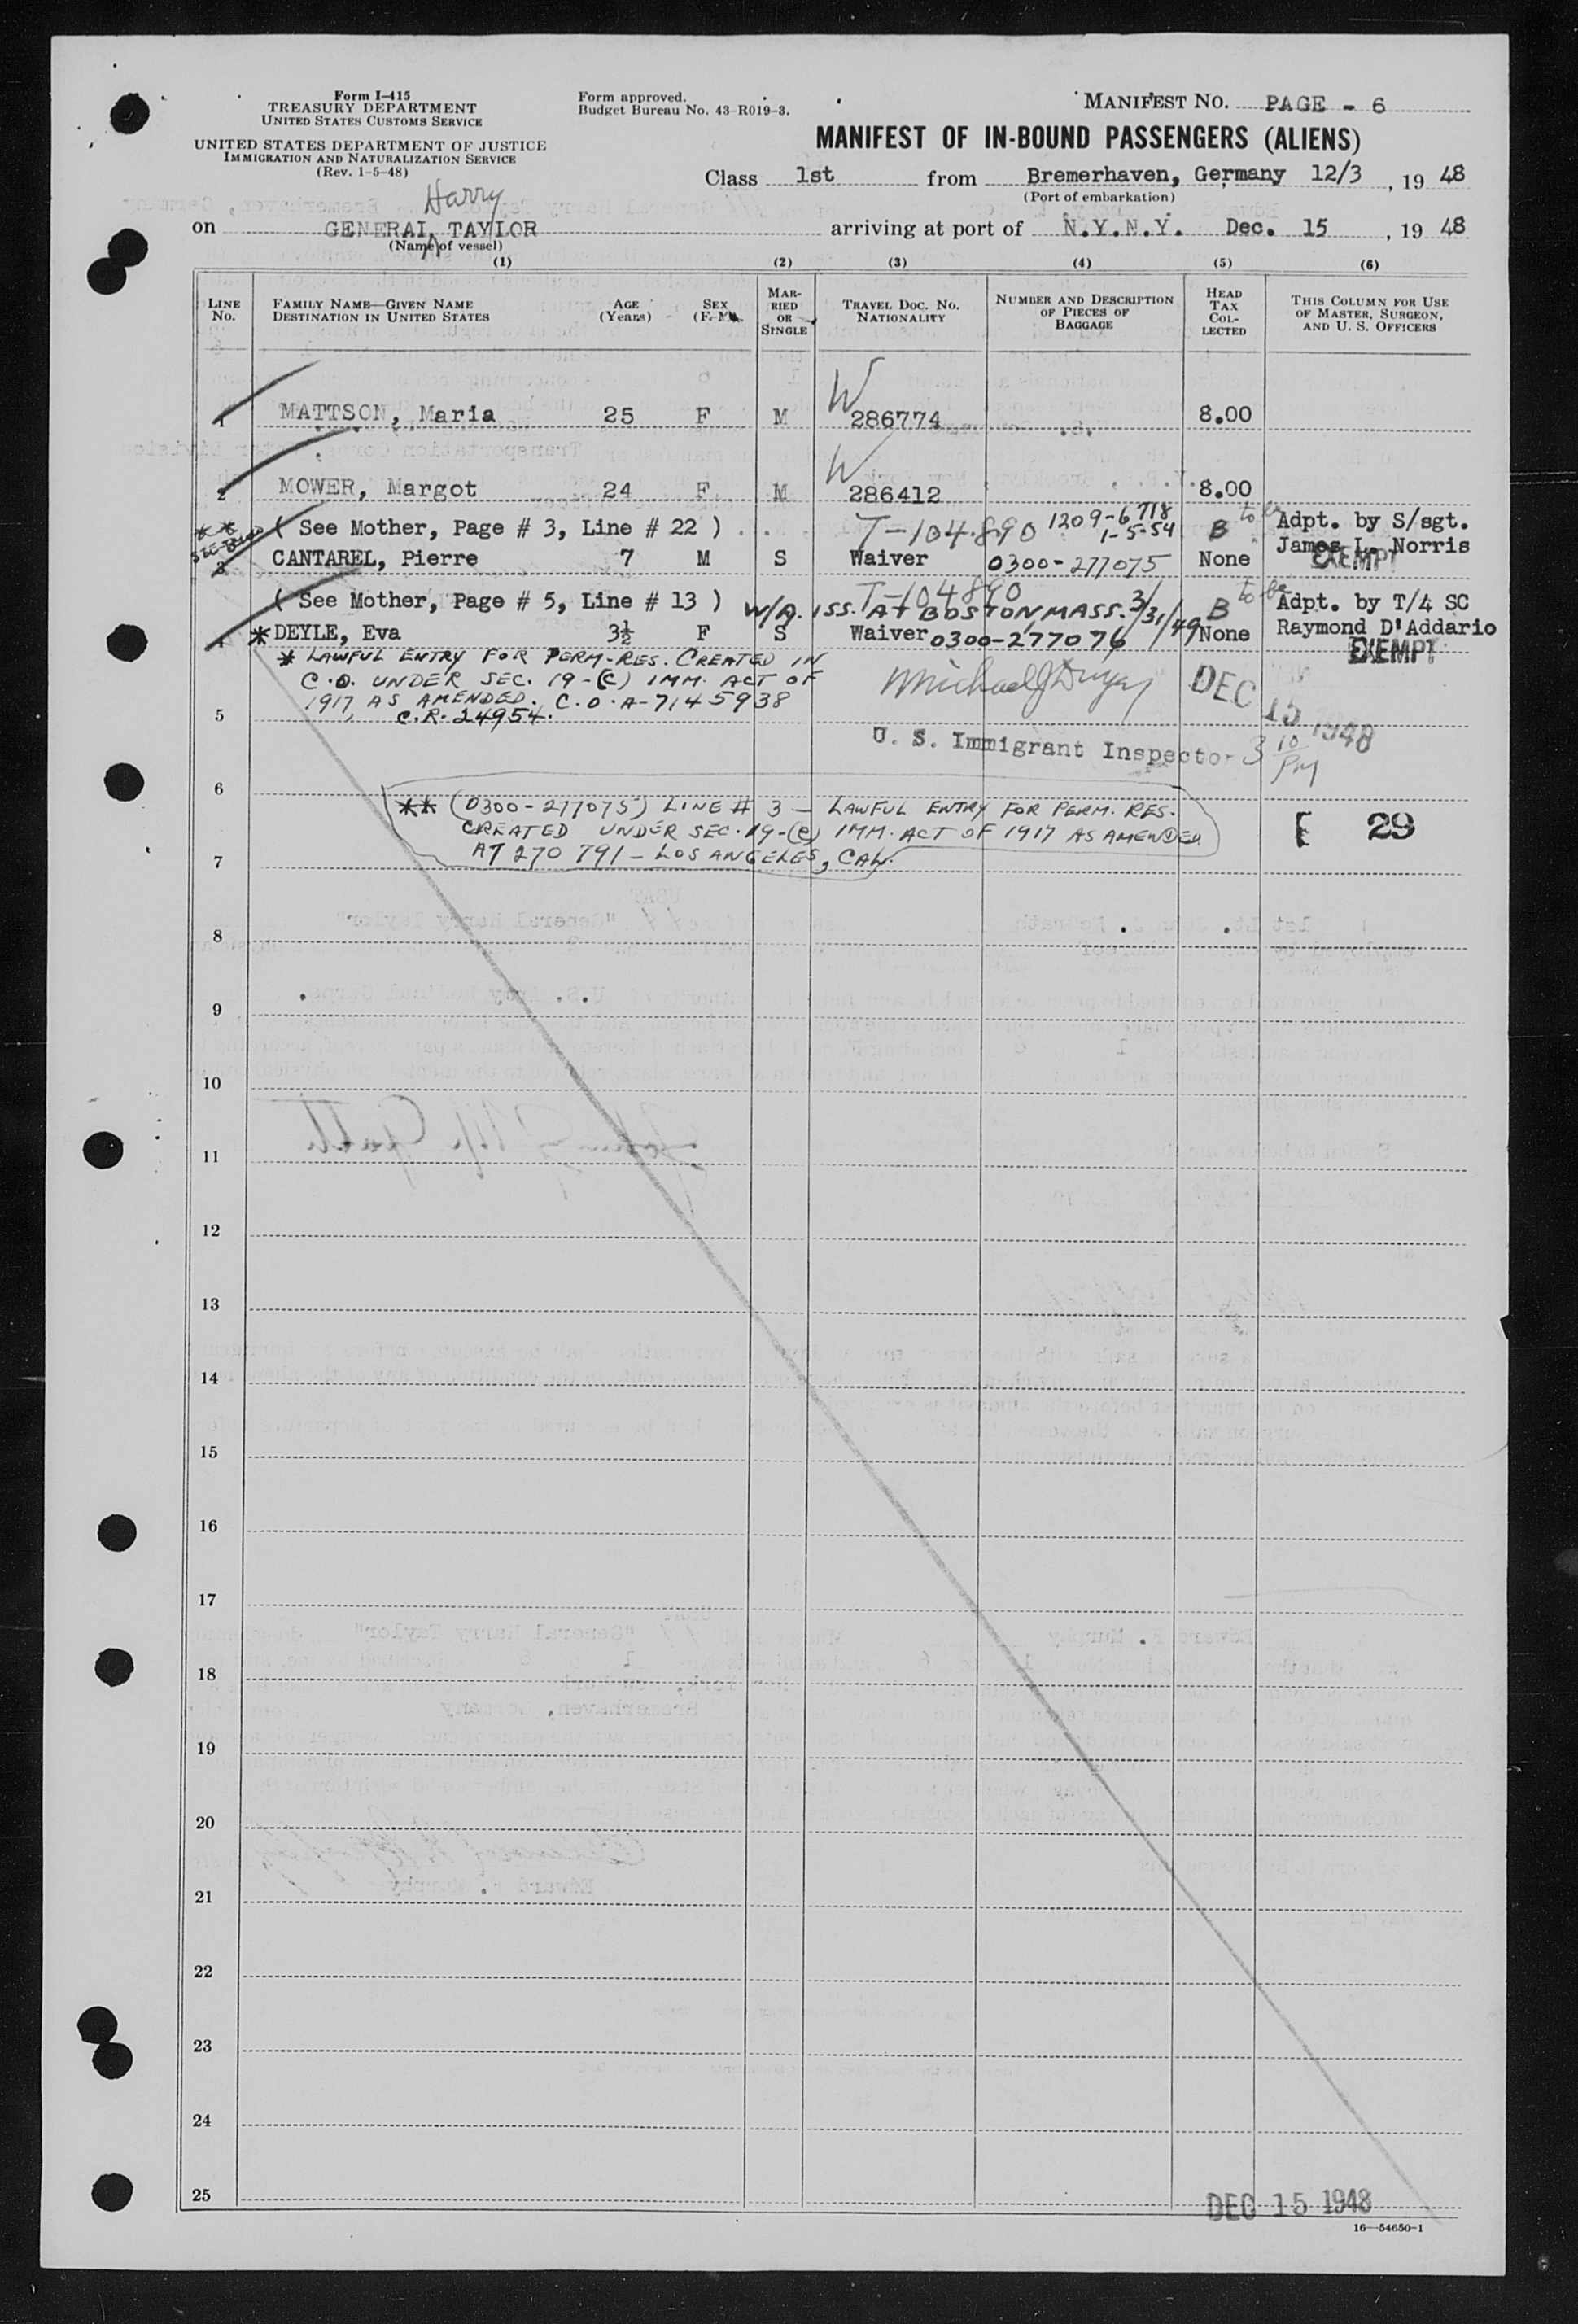 Form I-415
TREASURY DEPARTMENT
UNITED STATES CUSTOMS SERVICE
UNITED STATES DEPARTMENT OF JUSTICE
IMMIGRATION AND NATURALIZATION SERVICE
(Rev. 1-5-48)
Form approved.
Budget Bureau No. 43-R019-3.
MANIFEST NO. PAGE - 6
MANIFEST OF IN-BOUND PASSENGERS (ALIENS)
Class 1st from Bremerhaven, Germany 12/3, 19 48
(Port of embarkation)
Harry
on GENERAL TAYLOR arriving at port of N.Y.N.Y. Dec. 15, 19 48
(Name of vessel)
(1) (2) (3) (4) (5) (6)
LINE No. FAMILY NAME—GIVEN NAME DESTINATION IN UNITED STATES AGE (Years) SEX (F-M) MARRIED OR SINGLE TRAVEL DOC. NO. NATIONALITY NUMBER AND DESCRIPTION OF PIECES OF BAGGAGE HEAD TAX COLLECTED THIS COLUMN FOR USE OF MASTER, SURGEON, AND U. S. OFFICERS
W
1 MATTSON, Maria 25 F M 286774 8.00
W
2 MOWER, Margot 24 F M 286412 8.00
** ( See Mother, Page # 3, Line # 22 ) T-104890 1209-6718 1-5-54 B to be Adpt. by S/sgt.
James L. Norris
3 CANTAREL, Pierre 7 M S Waiver 0300-277075 None EXEMPT
T-104890
( See Mother, Page # 5, Line # 13 ) W/A. ISS. AT BOSTON MASS. 3/31/49 B to be Adpt. by T/4 SC
Raymond D'Addario
4 *DEYLE, Eva 3½ F S Waiver 0300-277076 None EXEMPT
* LAWFUL ENTRY FOR PERM-RES. CREATED IN
C.O. UNDER SEC. 19-(C) IMM. ACT OF
1917, AS AMENDED. C.O.A-7145938
C.R. 24954.
5
DEC 15 1948
U. S. Immigrant Inspector 3 10 PM
6
** (0300-277075) LINE # 3 — LAWFUL ENTRY FOR PERM. RES.
CREATED UNDER SEC. 19-(C) IMM. ACT OF 1917 AS AMENDED
AT 270 791 — LOS ANGELES, CAL.
[ 29
7
8
9
10
11
12
13
14
15
16
17
18
19
20
21
22
23
24
25
DEC 15 1948
16—54650-1